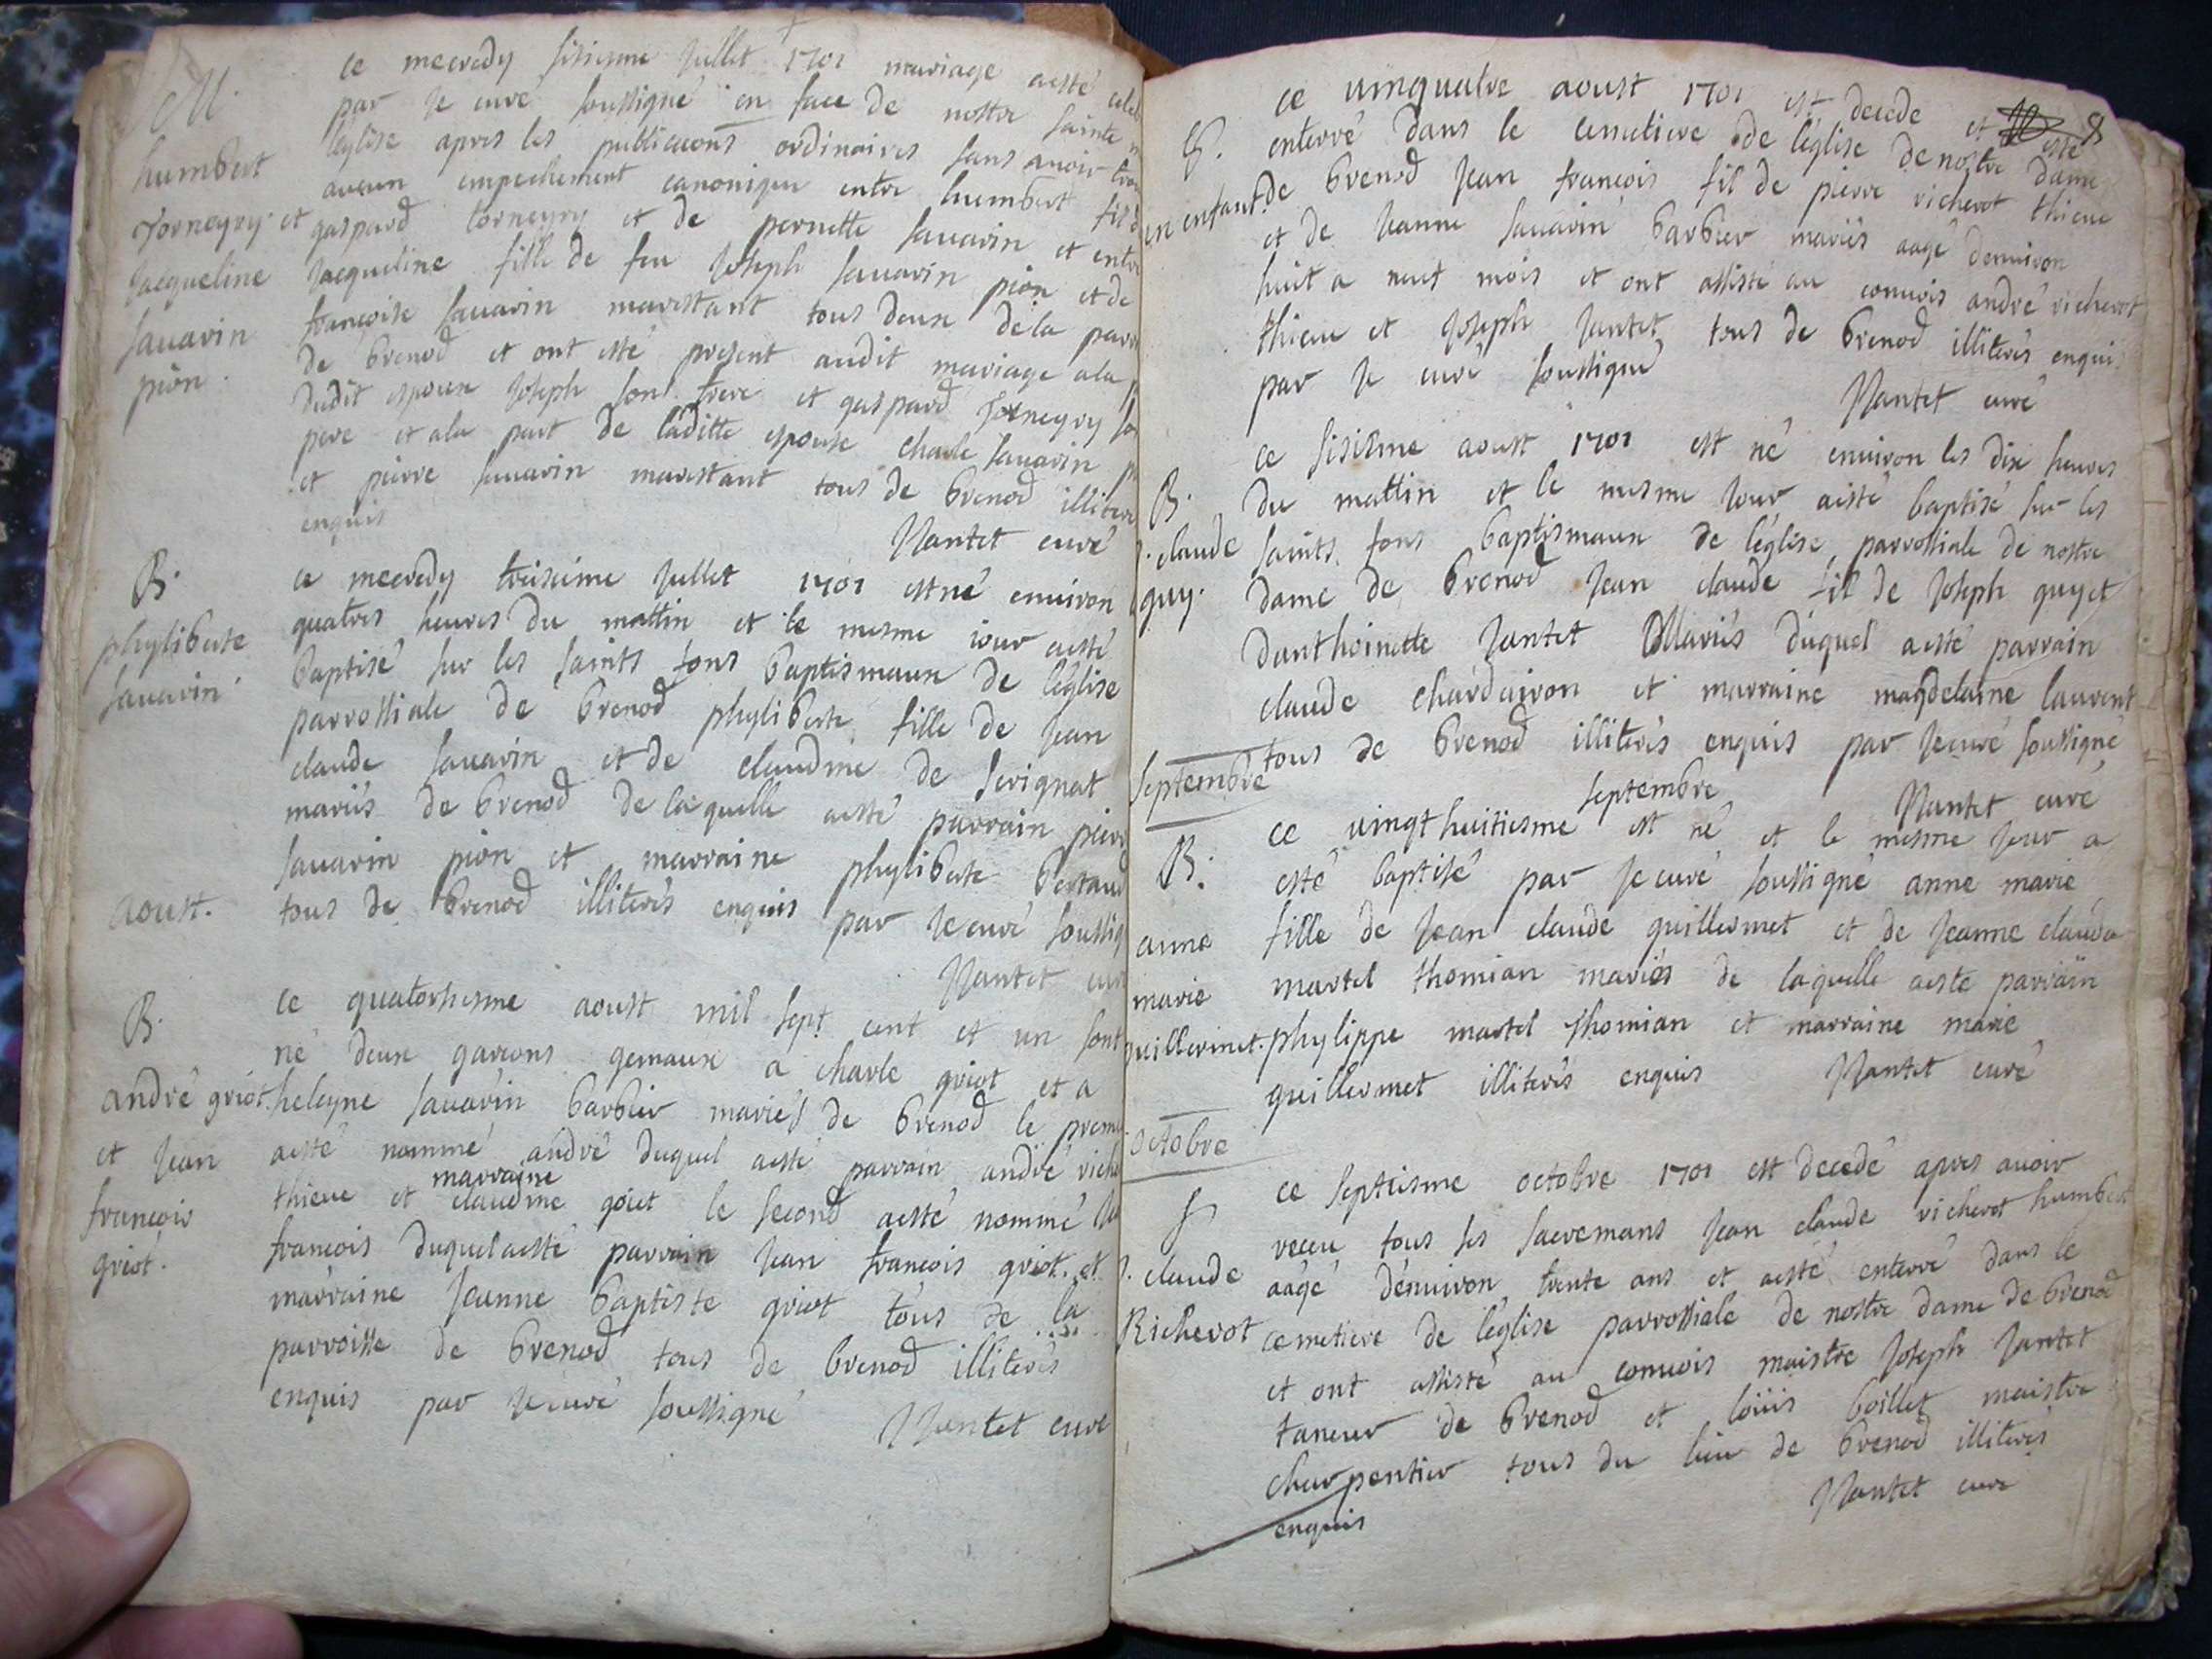 M.
humbert
Tornegry et
Jacqueline
sauarin
pion.
ce mecredy sisiesme Jullet 1701 mariage aesté celeb
par Je curé soussigné en face de nostre sainte
léglise apres les publicaons ordinaires sans auoir trou
aucun empechement canonique entre humbert fils
gaspard torneyry et de pernette sauarin et entre
Jacqueline fille de feu Joseph sauarin pion et de
francoise sauarin marestant tous deux de la parr
de brenod et ont esté present audit mariage ala
dudit espoux Joseph son frere et gaspard Tornegry so
pere et ala part de laditte espouse charle sauarin
et pierre sauarin marestant tous de brenod illitere
enquis
Nantet curé
B.
phyliberte
sauarin
ce mecredy treisieme Jullet 1701 est né enuiron
quatres heures du mattin et le mesme iour aesté
baptisé sur les saints fons baptismaux de léglise
parrossiale de brenod phyliberte fille de Jean
claude sauarin et de claudine de serignat
mariés de brenod de laquelle aesté parrain pierr
sauarin pion et marraine phyliberte bertaud
tous de brenod illiterés enquis par Je curé soussig
Nantet cur
aoust.
B.
andré griot
et Jean
francois
griot.
ce quatorsiesme aoust mil sept cent et un sont
né deux garcons gemaux a charle griot et a
heleyne sauarin barbier mariés de brenod le premi
aesté nommé andré duquel aesté parrain andré riche
marraine
thieue et claudine goiet le second aesté nommé Je
francois duquel aesté parrain Jean francois griot et
marraine Jeanne baptiste griot tous de la
parroisse de brenod tous de brenod illiterés
enquis par Je curé soussigné
Nantet curé
8
S.
un enfant
ce uinquatre aoust 1701 est decede et esté
enterré dans le cemetiere de léglise de nostre dame
de brenod Jean francois fil de pierre richerot thieue
et de Jeanne sauarin barbier mariés aagé denuiron
huit a neuf mois et ont assisté au conuois andré richerot
thieue et Joseph Jantet tous de brenod illiterés enquis
par Je curé soussigné
Nantet curé
B.
J. claude
guy.
ce sisiesme aoust 1701 est né enuiron les dix heures
du mattin et le mesme Jour aesté baptisé sur les
saints fons baptismaux de léglise parrossiale de nostre
dame de brenod Jean claude fil de Joseph guy et
danthoinette Jantet Mariés duquel aesté parrain
claude chardairon et marraine magdelaine laurent
tous de brenod illiterés enquis par Je curé soussigné
Nantet curé
septembre
B.
anne
marie
guillermet.
septembre
ce uingthuitiesme est né et le mesme Jour a
esté baptisé par Je curé soussigné anne marie
fille de Jean claude guillermet et de Jeanne clauda
martel thomian mariés de laquelle aesté parrain
phylippe martel thomian et marraine marie
guillermet illiterés enquis
Nantet curé
octobre
S
J. claude
Richerot
ce septiesme octobre 1701 est decedé apres auoir
receu tous ses sacremans Jean claude richerot humbert
aagé denuiron trente ans et aesté enterré dans le
cemetiere de léglise parrossiale de nostre dame de brenod
et ont assisté au conuois maistre Joseph Jantet
taneur de brenod et loüis boillet maistre
charpentier tous du lieu de brenod illiterés
enquis
Nantet curé